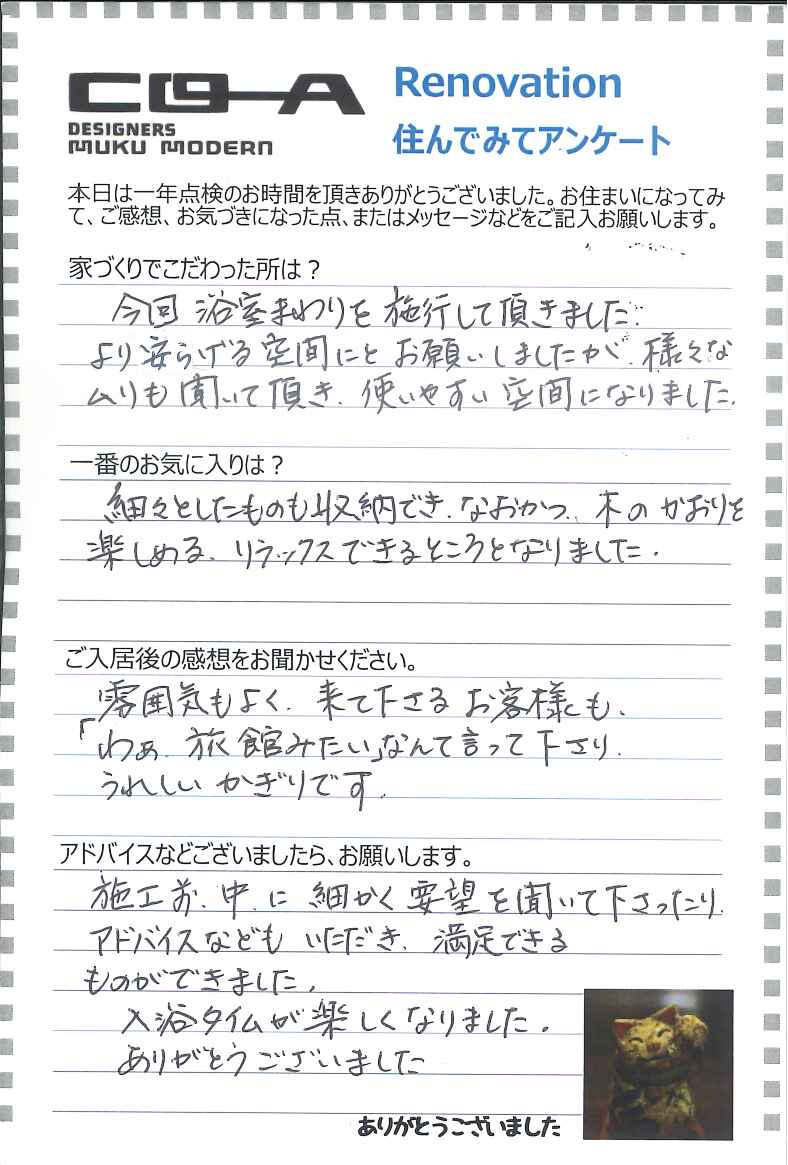 COGA
Renovation
DESIGNERS
MUKU MODERN
住んでみてアンケート
本日は一年点検のお時間を頂きありがとうございました。お住まいになってみ
て、ご感想、お気づきになった点、またはメッセージなどをご記入お願いします。
家づくりでこだわった所は？
今回 浴室まわりを 施行して頂きました.
より安らげる空間にと お願いしましたが、様々な
ムリも聞いて頂き、使いやすい 空間になりました.
一番のお気に入りは？
細々としたものも収納でき、なおかつ、木の かおりを
楽しめる、リラックスできるところとなりました.
ご入居後の感想をお聞かせください。
雰囲気もよく、来て下さる お客様も、
「わぁ、旅館みたい」なんて言って下さり、
うれしい かぎりです.
アドバイスなどございましたら、お願いします。
施工前、中、に 細かく 要望を聞いて下さったり、
アドバイスなども いただき、満足できる
ものができました。
入浴タイムが楽しくなりました。
ありがとうございました
ありがとうございました